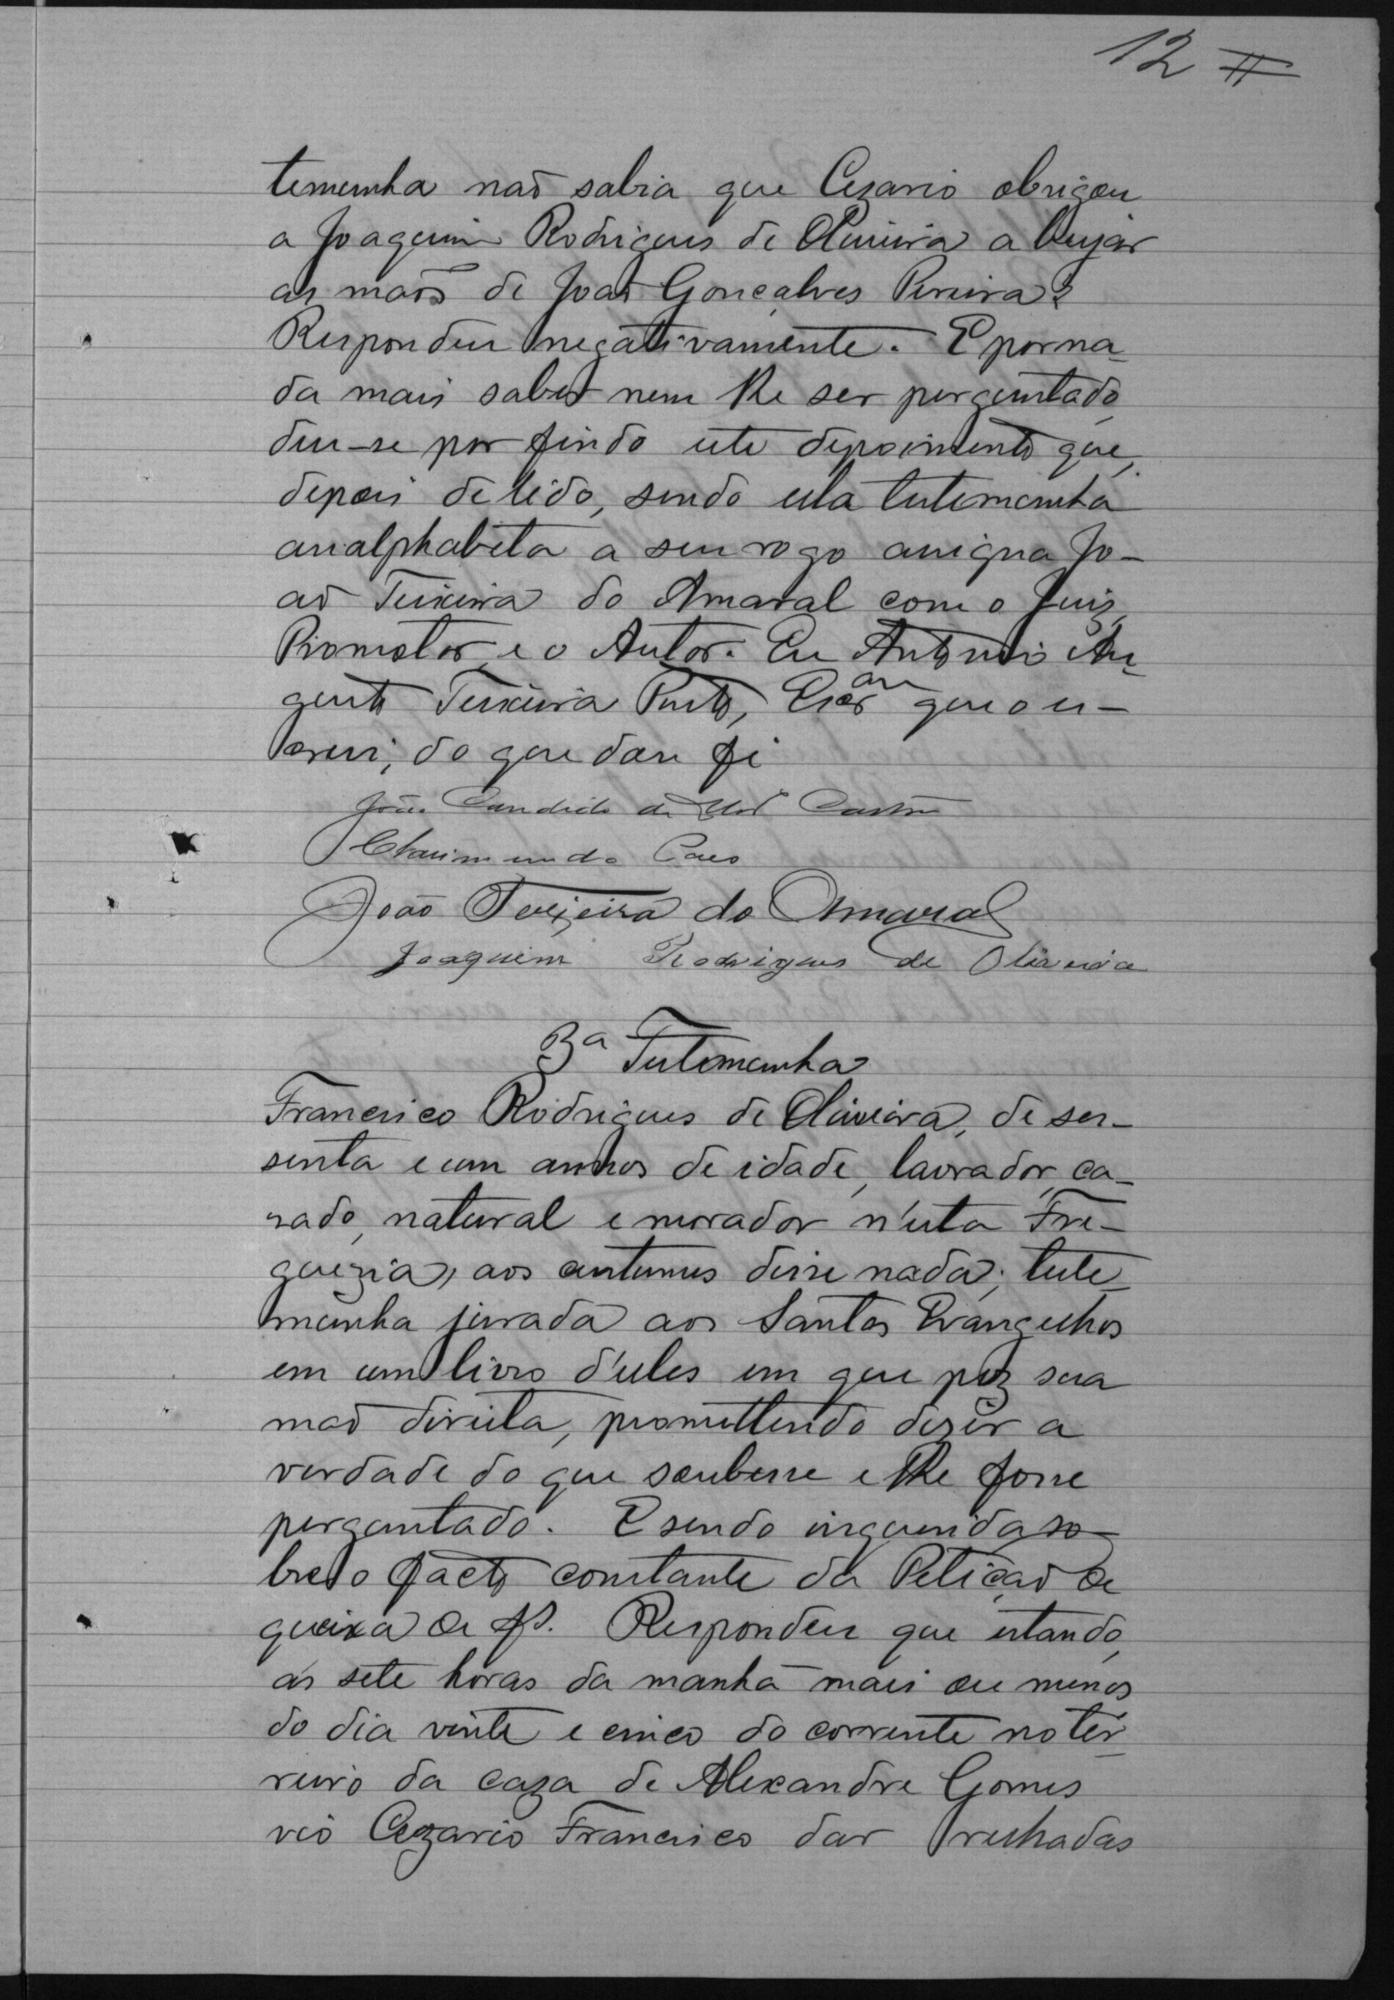 12
temunha não sabia que Cezario obrigou
a Joaquim Rodrigues de Oliveira a beijar
as mãos de João Gonçalves Pereira?
Respondeu negativamente. E por na-
da mais saber nem lhe ser perguntado,
deu-se por findo este depoimento que,
depois de lido, sendo esta testemunha
analphabeta a seu rogo assigna Jo-
ão Teixeira do Amaral com o Juiz,
Promotor e o Autor. Eu Antonio Au-
gusto Teixeira Pinto, Escam que o es-
crevi, do que dou fé
João Candido de Castro
João Teixeira do Amaral
Joaquim Rodrigues de Oliveira
3ª Testemunha
Francisco Rodrigues de Oliveira, de ses-
senta e um annos de idade, lavrador, ca-
sado, natural e morador n'esta Fre-
guezia, aos custumes disse nada; teste-
munha jurada aos Santos Evangelhos
em um livro d'elles em que poz sua
mão direita, promettendo dizer a
verdade do que soubesse e lhe fosse
perguntado. E sendo inquerida so-
bre o facto constante da Petição de
queixa de fs. Respondeu que estando,
ás sete horas da manhã mais ou menos
do dia vinte e cinco do corrente no ter-
reiro da caza de Alexandre Gomes
vio Cezario Francisco dar relhadas